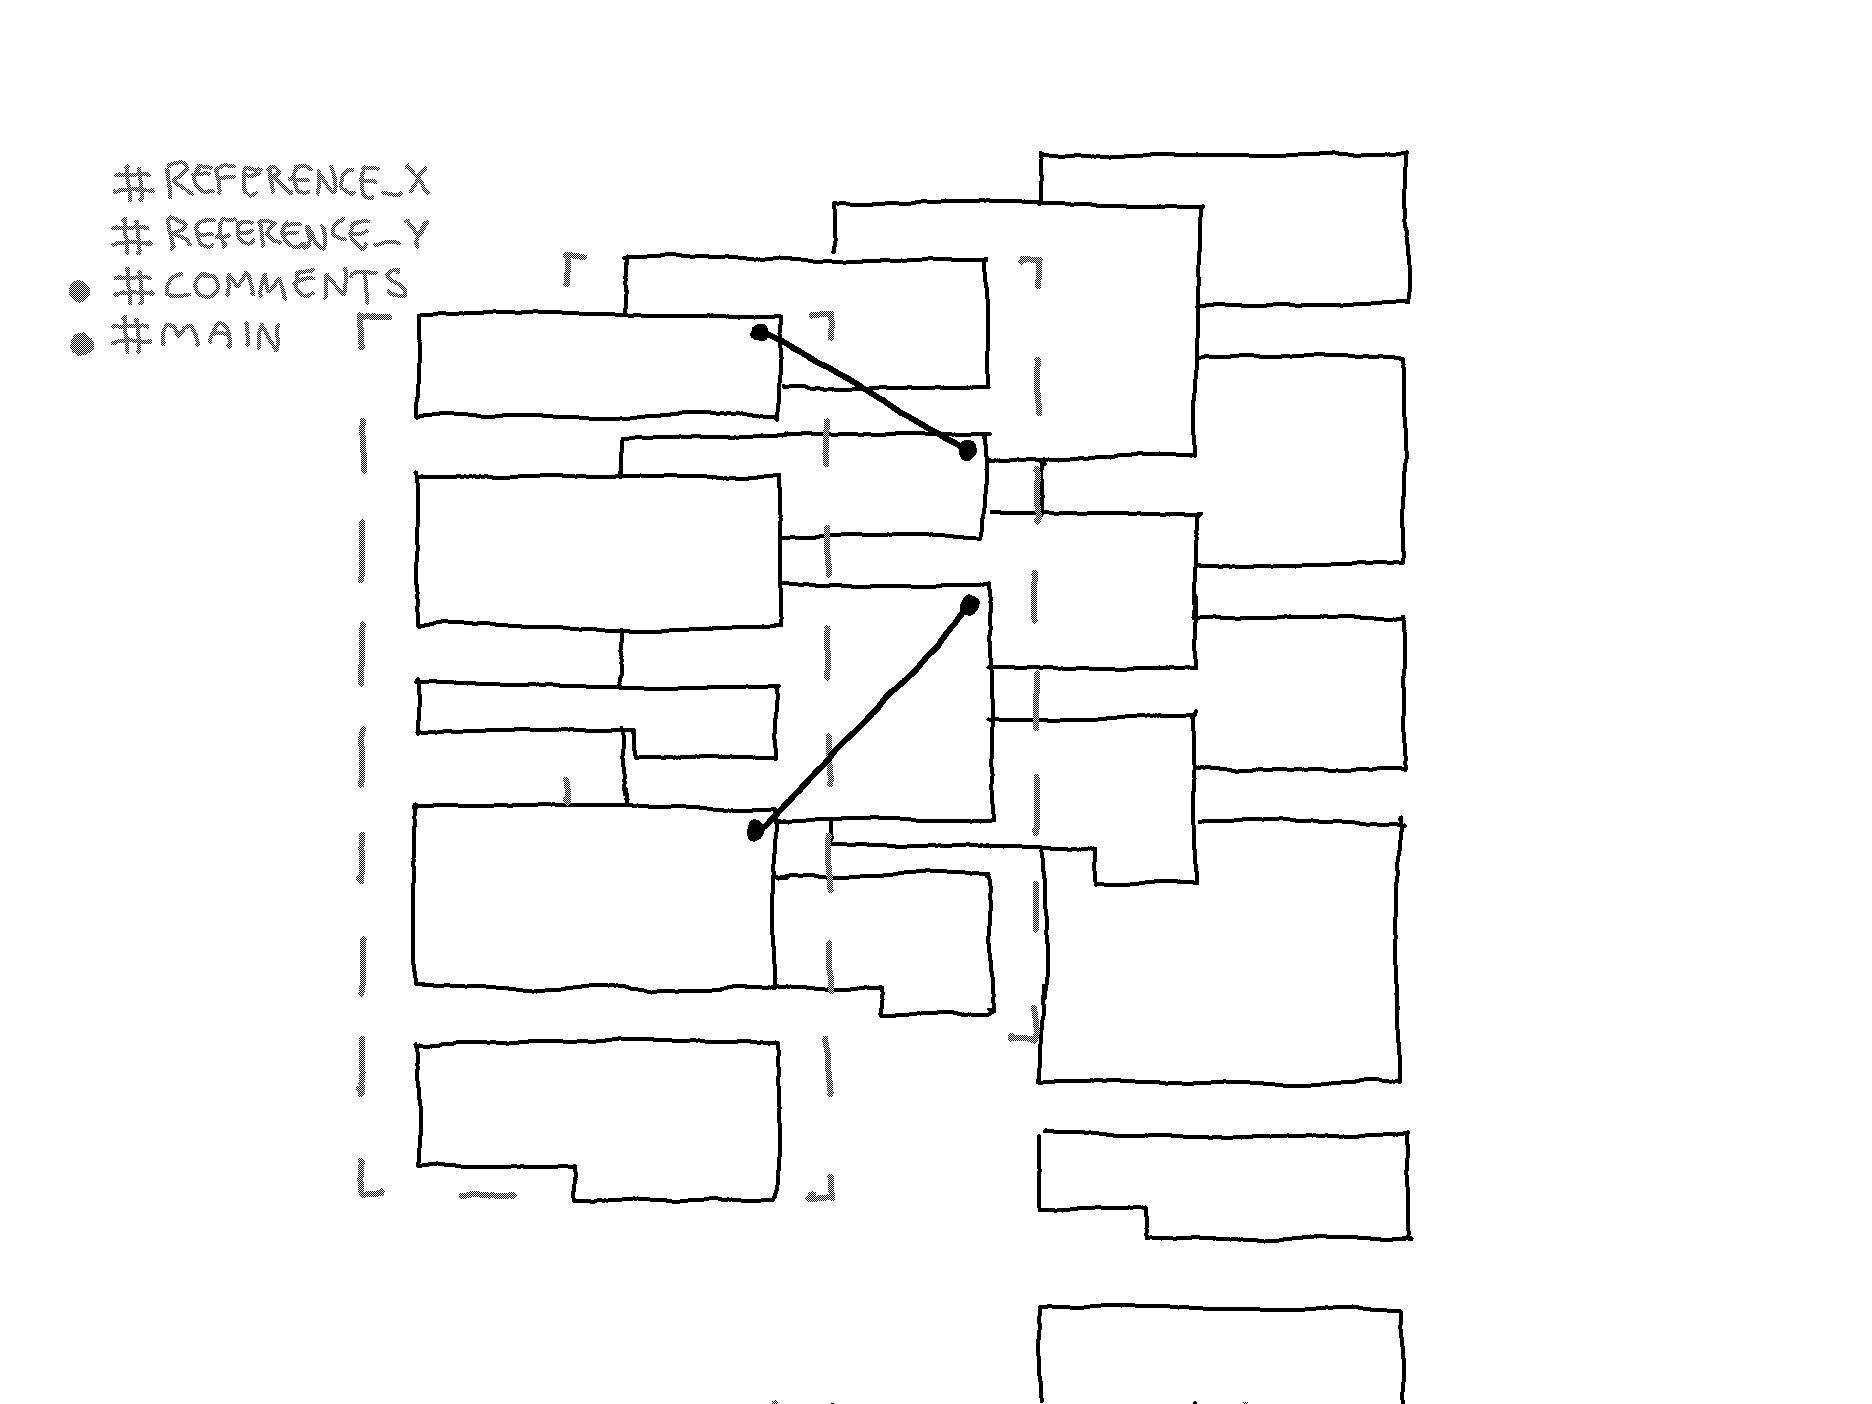 # REFERENCE_X
# REFERENCE_Y
# COMMENTS
# MAIN